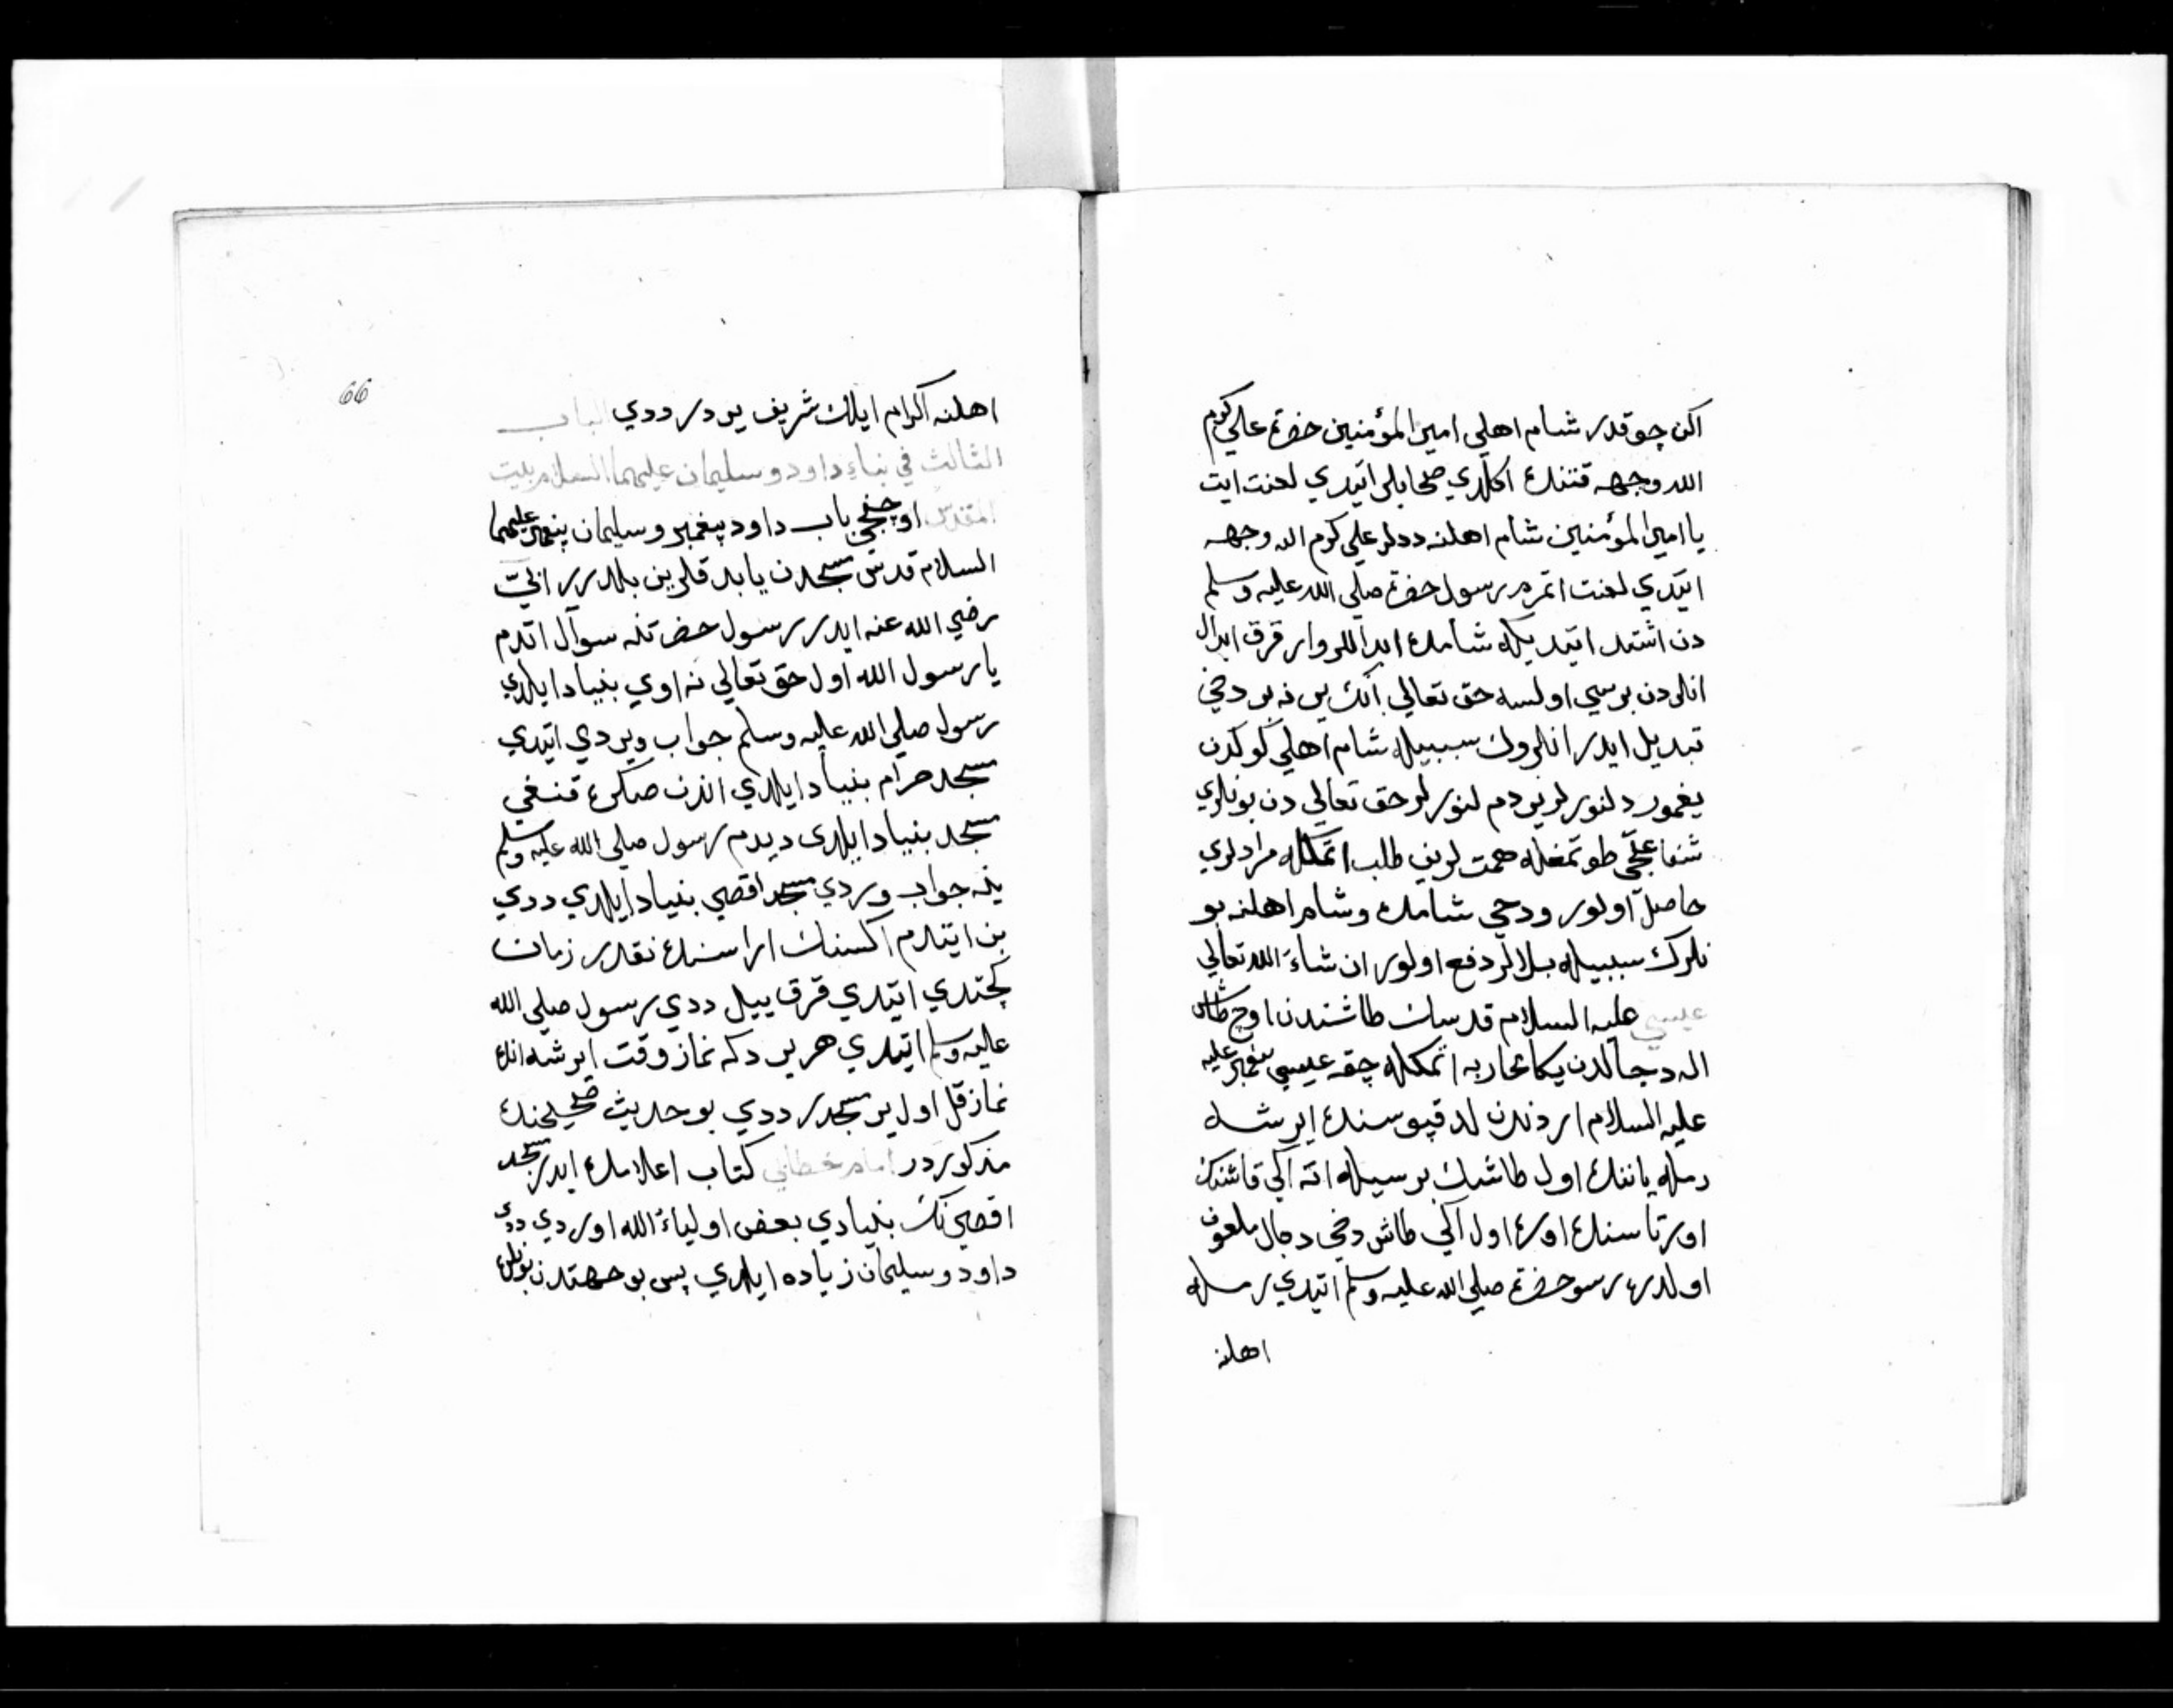 اكن چوقدر شام اهلي امير المؤمنين حضرة علي كرم
الله وجهه قتنده اكلدي صحابلر ايتدي لعنت ايت
يا امير المؤمنين شام اهلنه ددلر علي كرم الله وجهه
ايتدي لعنت اتمزم رسول حضرة صلي الله عليه وسلم
دن اشتدم ايتديكه شامده ابداللر وار قرق ابدال
انلردن برسي اولسه حق تعالي انك يرنه بر دخي
تبديل ايدر انلروك سببيله شام اهلي كوكدن
يغمور دلنورلر يردم لنورلر حق تعالي دن بونلري
شفاعتجي طوتمغله همت لرين طلب اتمكله مرادلري
حاصل اولور ودخي شامده وشام اهلنه بو
نلرك سببيله بلالر دفع اولور ان شاء الله تعالي
عيسي عليه السلام قدسك طاشندن اوچ طاش
اله دجالدن يكا محاربه اتمكله چقه عيسي پيغمبر عليه
عليه السلام اردندن لد قپوسنده ايرشه
رمله ياننده اول طاشك برسيله اته اكي قاشنك
اورتاسنده اوره اول اكي طاش دخي دجال ملعون
اولدره رسو حضرة صلي الله عليه وسلم ايتدي رمله
اهلنه
66
اهلنه اكرام ايلك شريف يردر ددي الباب
الثالث في بناء داود و سليمان عليهما السلام بيت
المقدس اوچنجي باب داود پيغمبر و سليمان پيغمبر عليهما
السلام قدس مسجدن يابد قلرين بلدرر
رضي الله عنه ايدر رسول حضرتنه سوآل اتدم
يا رسول الله اول حق تعالي نه اوي بنياد ايلدي
رسول صلي الله عليه وسلم جواب ويردي ايتدي
مسجد حرام بنياد ايلدي اندن صكره قنغي
مسجد بنياد ايلدي ديدم رسول صلي الله عليه وسلم
ينه جواب وردي مسجد اقصي بنياد ايلدي ددي
بن ايتدم اكسنك اراسنده نقدر زمان
كچتدي ايتدي قرق ييل ددي رسول صلي الله
عليه وسلم ايتدي هر يردكه نماز وقت ايرشه انده
نماز قل اول ير مسجددر ددي بو حديث صحيحنده
مذكوردر امام خطابي كتاب اعلامده ايدر مسجد
اقصي نك بنيادي بعض اولياء الله اوردي ددي
داود و سليمان زياده ايلدي پس بو جهتدن بونلره